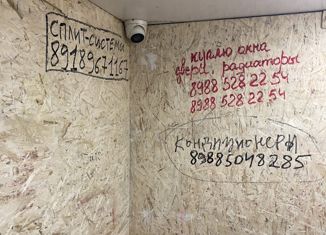 СПЛИТ-СИСТЕМЫ
89189671167
куплю окна
двери, радиаторы
8988 528 22 54
8988 528 22 54
Кондиционеры
89885048285